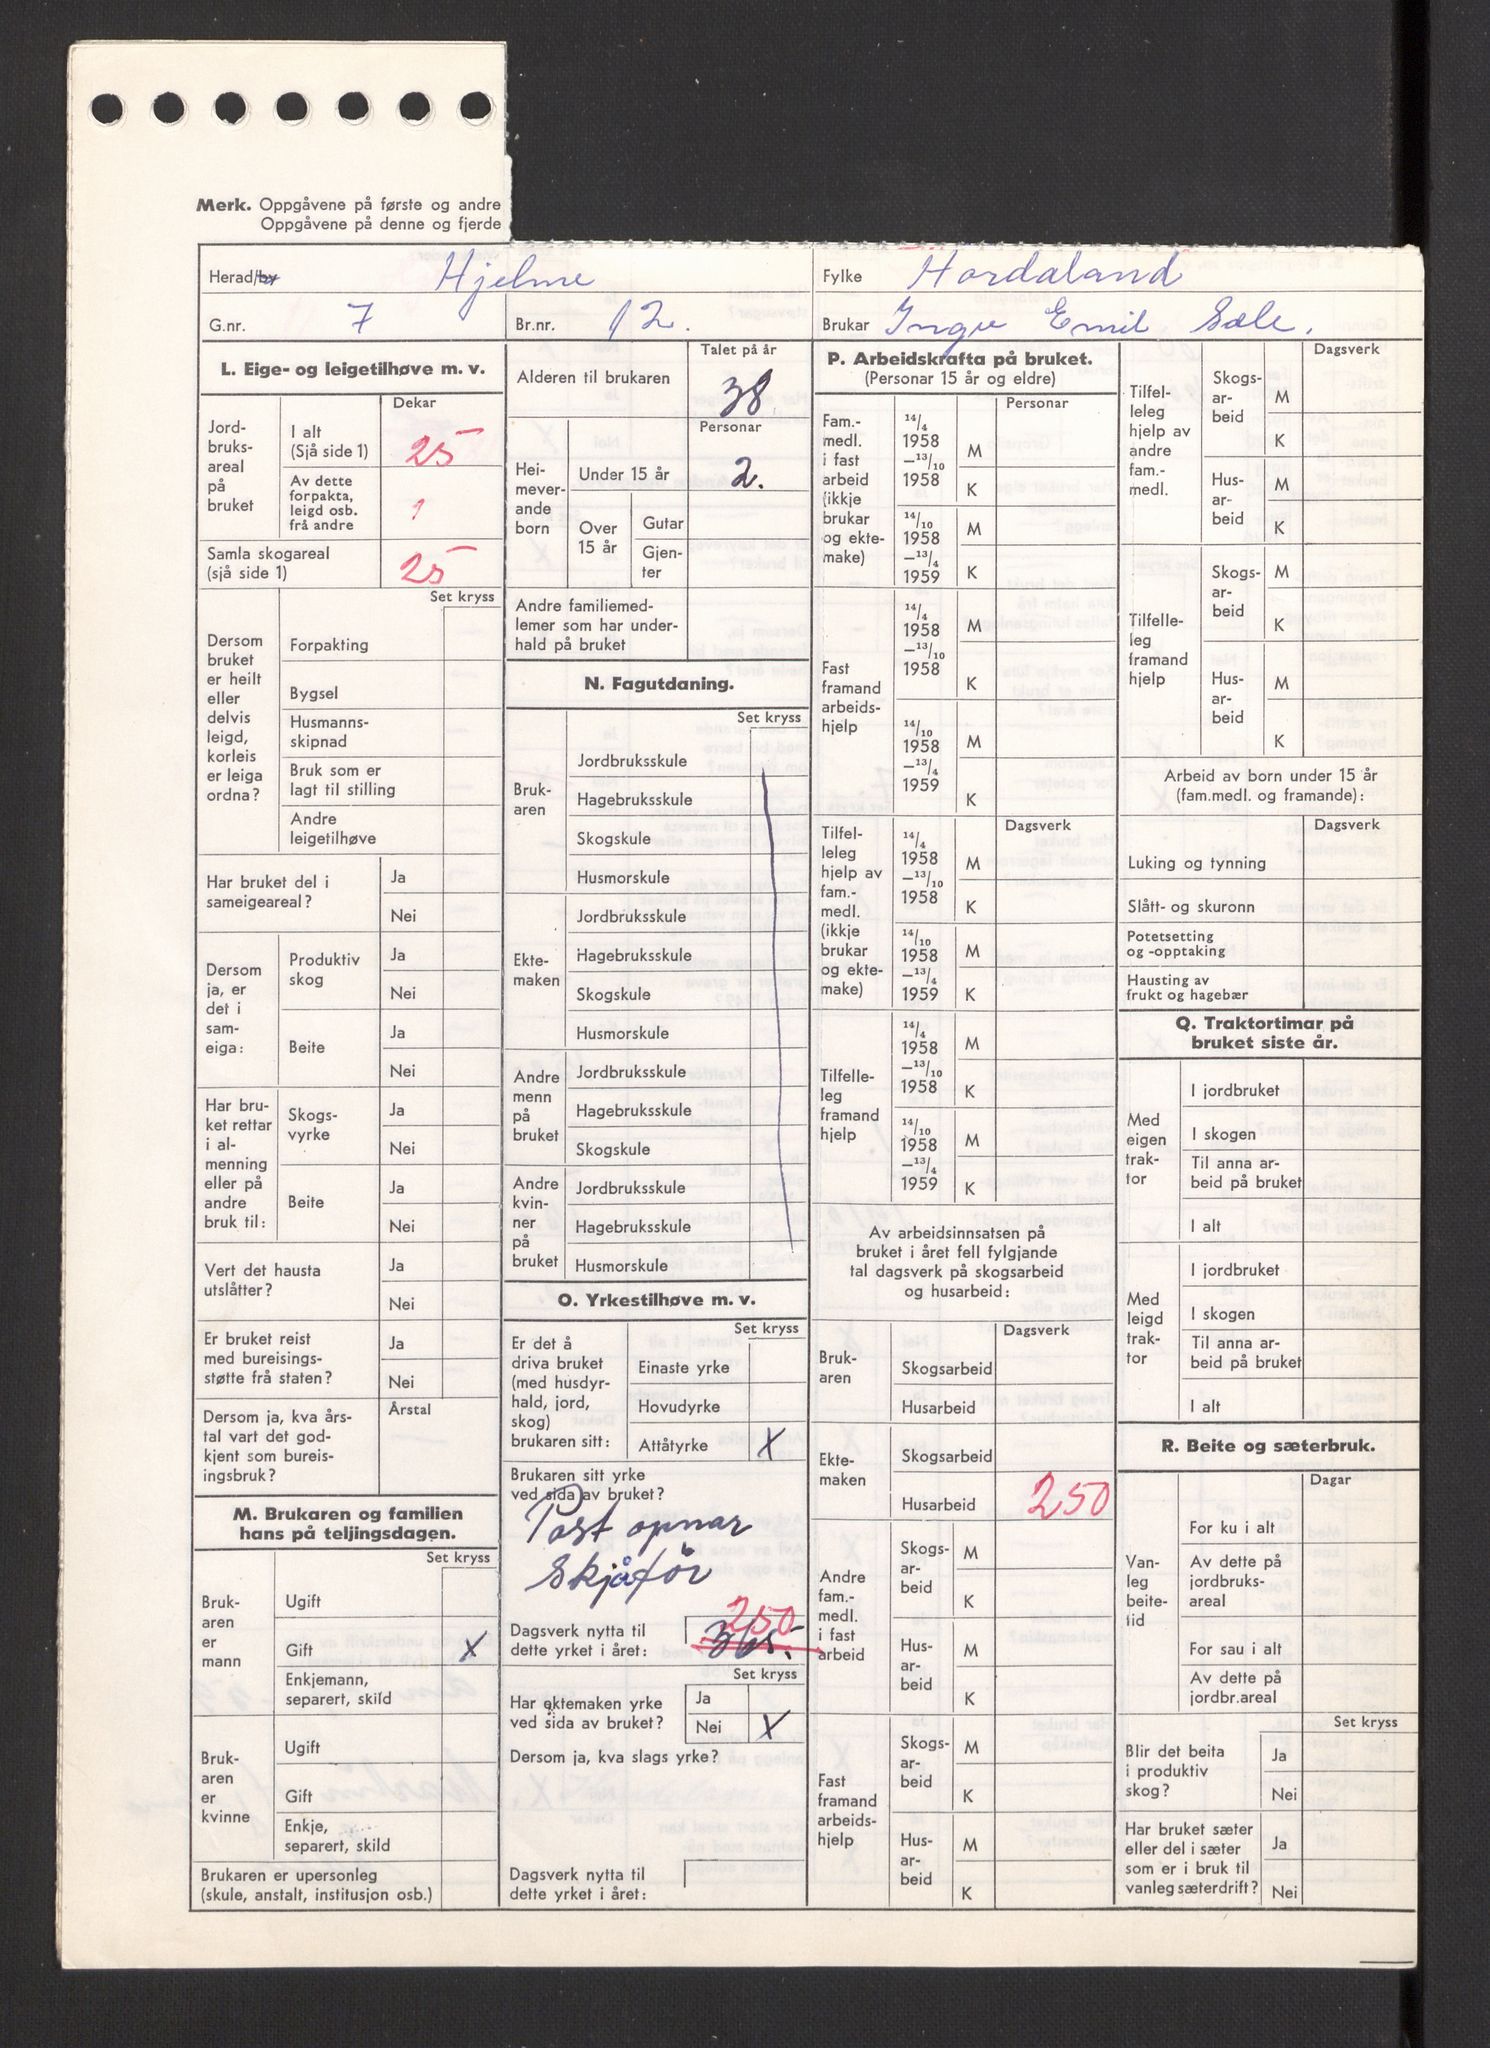 Merk. Oppgåvene på første og andre
Oppgåvene på denne og fjerde
Herad/by Hjelme
Fylke Hordaland
G.nr. 7
Br.nr. 12.
Brukar Ingv Emil Sæle.
L. Eige- og leigetilhøve m. v.
Dekar
Jord-
bruks-
areal
på
bruket
I alt
(Sjå side 1)
25
Av dette
forpakta,
leigd osb.
frå andre
1
Samla skogareal
(sjå side 1)
25
Set kryss
Dersom
bruket
er heilt
eller
delvis
leigd,
korleis
er leiga
ordna?
Forpakting
Bygsel
Husmanns-
skipnad
Bruk som er
lagt til stilling
Andre
leigetilhøve
Har bruket del i
sameigeareal?
Ja
Nei
Dersom
ja, er
det i
sam-
eiga:
Produktiv
skog
Ja
Nei
Beite
Ja
Nei
Har bru-
ket rettar
i al-
menning
eller på
andre
bruk til:
Skogs-
vyrke
Ja
Nei
Beite
Ja
Nei
Vert det hausta
utslåtter?
Ja
Nei
Er bruket reist
med bureisings-
støtte frå staten?
Ja
Nei
Dersom ja, kva års-
tal vart det god-
kjent som bureis-
ingsbruk?
Årstal
M. Brukaren og familien
hans på teljingsdagen.
Set kryss
Bruk-
aren
er
mann
Ugift
Gift X
Enkjemann,
separert, skild
Bruk-
aren
er
kvinne
Ugift
Gift
Enkje,
separert, skild
Brukaren er upersonleg
(skule, anstalt, institusjon osb.)
Talet på år
Alderen til brukaren 38
Personar
Hei-
mever-
ande
born
Under 15 år 2.
Over
15 år
Gutar
Gjen-
ter
Andre familiemed-
lemer som har under-
hald på bruket
N. Fagutdaning.
Set kryss
Bruk-
aren
Jordbruksskule
Hagebruksskule
Skogskule
Husmorskule
Ekte-
maken
Jordbruksskule
Hagebruksskule
Skogskule
Husmorskule
Andre
menn
på
bruket
Jordbruksskule
Hagebruksskule
Skogskule
Andre
kvin-
ner
på
bruket
Jordbruksskule
Hagebruksskule
Husmorskule
O. Yrkestilhøve m. v.
Set kryss
Er det å
driva bruket
(med husdyr-
hald, jord,
skog)
brukaren sitt:
Einaste yrke
Hovudyrke
Attåtyrke X
Brukaren sitt yrke
ved sida av bruket?
Post opnar
Skjåfør
Dagsverk nytta til
dette yrket i året:
250
365.
Set kryss
Har ektemaken yrke
ved sida av bruket?
Ja
Nei X
Dersom ja, kva slags yrke?
Dagsverk nytta til
dette yrket i året:
P. Arbeidskrafta på bruket.
(Personar 15 år og eldre)
Personar
Fam.-
medl.
i fast
arbeid
(ikkje
brukar
og ekte-
make)
14/4
1958
—13/10
1958
M
K
14/10
1958
—13/4
1959
M
K
Fast
framand
arbeids-
hjelp
14/4
1958
—13/10
1958
M
K
14/10
1958
—13/4
1959
M
K
Dagsverk
Tilfel-
leleg
hjelp av
fam.-
medl.
(ikkje
brukar
og ekte-
make)
14/4
1958
—13/10
1958
M
K
14/10
1958
—13/4
1959
M
K
Tilfelle-
leg
framand
hjelp
14/4
1958
—13/10
1958
M
K
14/10
1958
—13/4
1959
M
K
Av arbeidsinnsatsen på
bruket i året fell fylgjande
tal dagsverk på skogsarbeid
og husarbeid:
Dagsverk
Bruk-
aren
Skogsarbeid
Husarbeid
Ekte-
maken
Skogsarbeid
Husarbeid 250
Andre
fam.-
medl.
i fast
arbeid
Skogs-
ar-
beid
M
K
Hus-
ar-
beid
M
K
Fast
framand
arbeids-
hjelp
Skogs-
ar-
beid
M
K
Hus-
ar-
beid
M
K
Dagsverk
Tilfel-
leleg
hjelp av
andre
fam.-
medl.
Skogs-
ar-
beid
M
K
Hus-
ar-
beid
M
K
Tilfelle-
leg
framand
hjelp
Skogs-
ar-
beid
M
K
Hus-
ar-
beid
M
K
Arbeid av born under 15 år
(fam.medl. og framande):
Dagsverk
Luking og tynning
Slått- og skuronn
Potetsetting
og -opptaking
Hausting av
frukt og hagebær
Q. Traktortimar på
bruket siste år.
Med
eigen
trak-
tor
I jordbruket
I skogen
Til anna ar-
beid på bruket
I alt
Med
leigd
trak-
tor
I jordbruket
I skogen
Til anna ar-
beid på bruket
I alt
R. Beite og sæterbruk.
Dagar
Van-
leg
beite-
tid
For ku i alt
Av dette på
jordbruks-
areal
For sau i alt
Av dette på
jordbr.areal
Set kryss
Blir det beita
i produktiv
skog?
Ja
Nei
Har bruket sæter
eller del i sæter
som er i bruk til
vanleg sæterdrift?
Ja
Nei